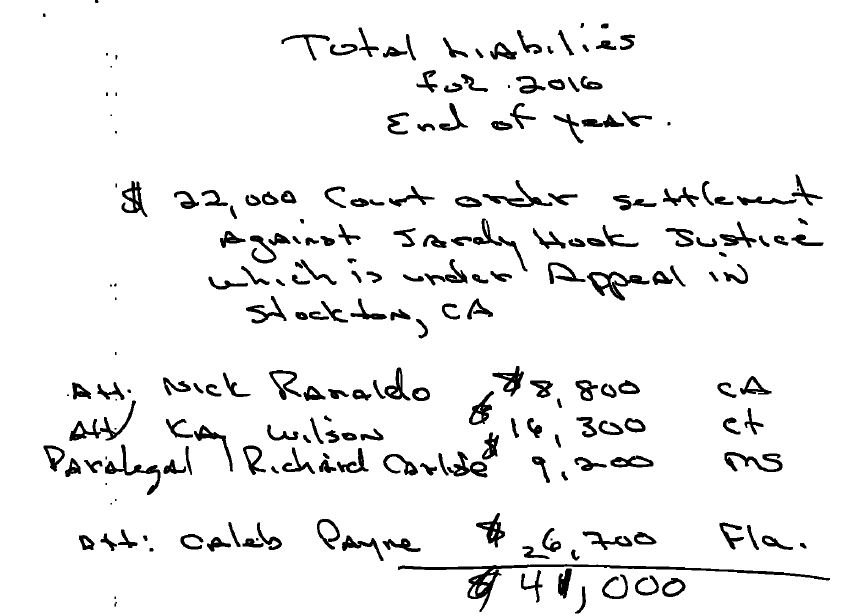 Total Liabilies
for 2016
End of year.
$ 22,000 Court order settlement
Against Sandy Hook Justice
which is under Appeal in
Stockton, CA
Att: Nick Ranaldo $8,800 CA
Att/ Kay Wilson $16,300 Ct
Paralegal Richard Carlisle $9,200 MS
Att: Caleb Payne $ 26,700 Fla.
$ 41,000